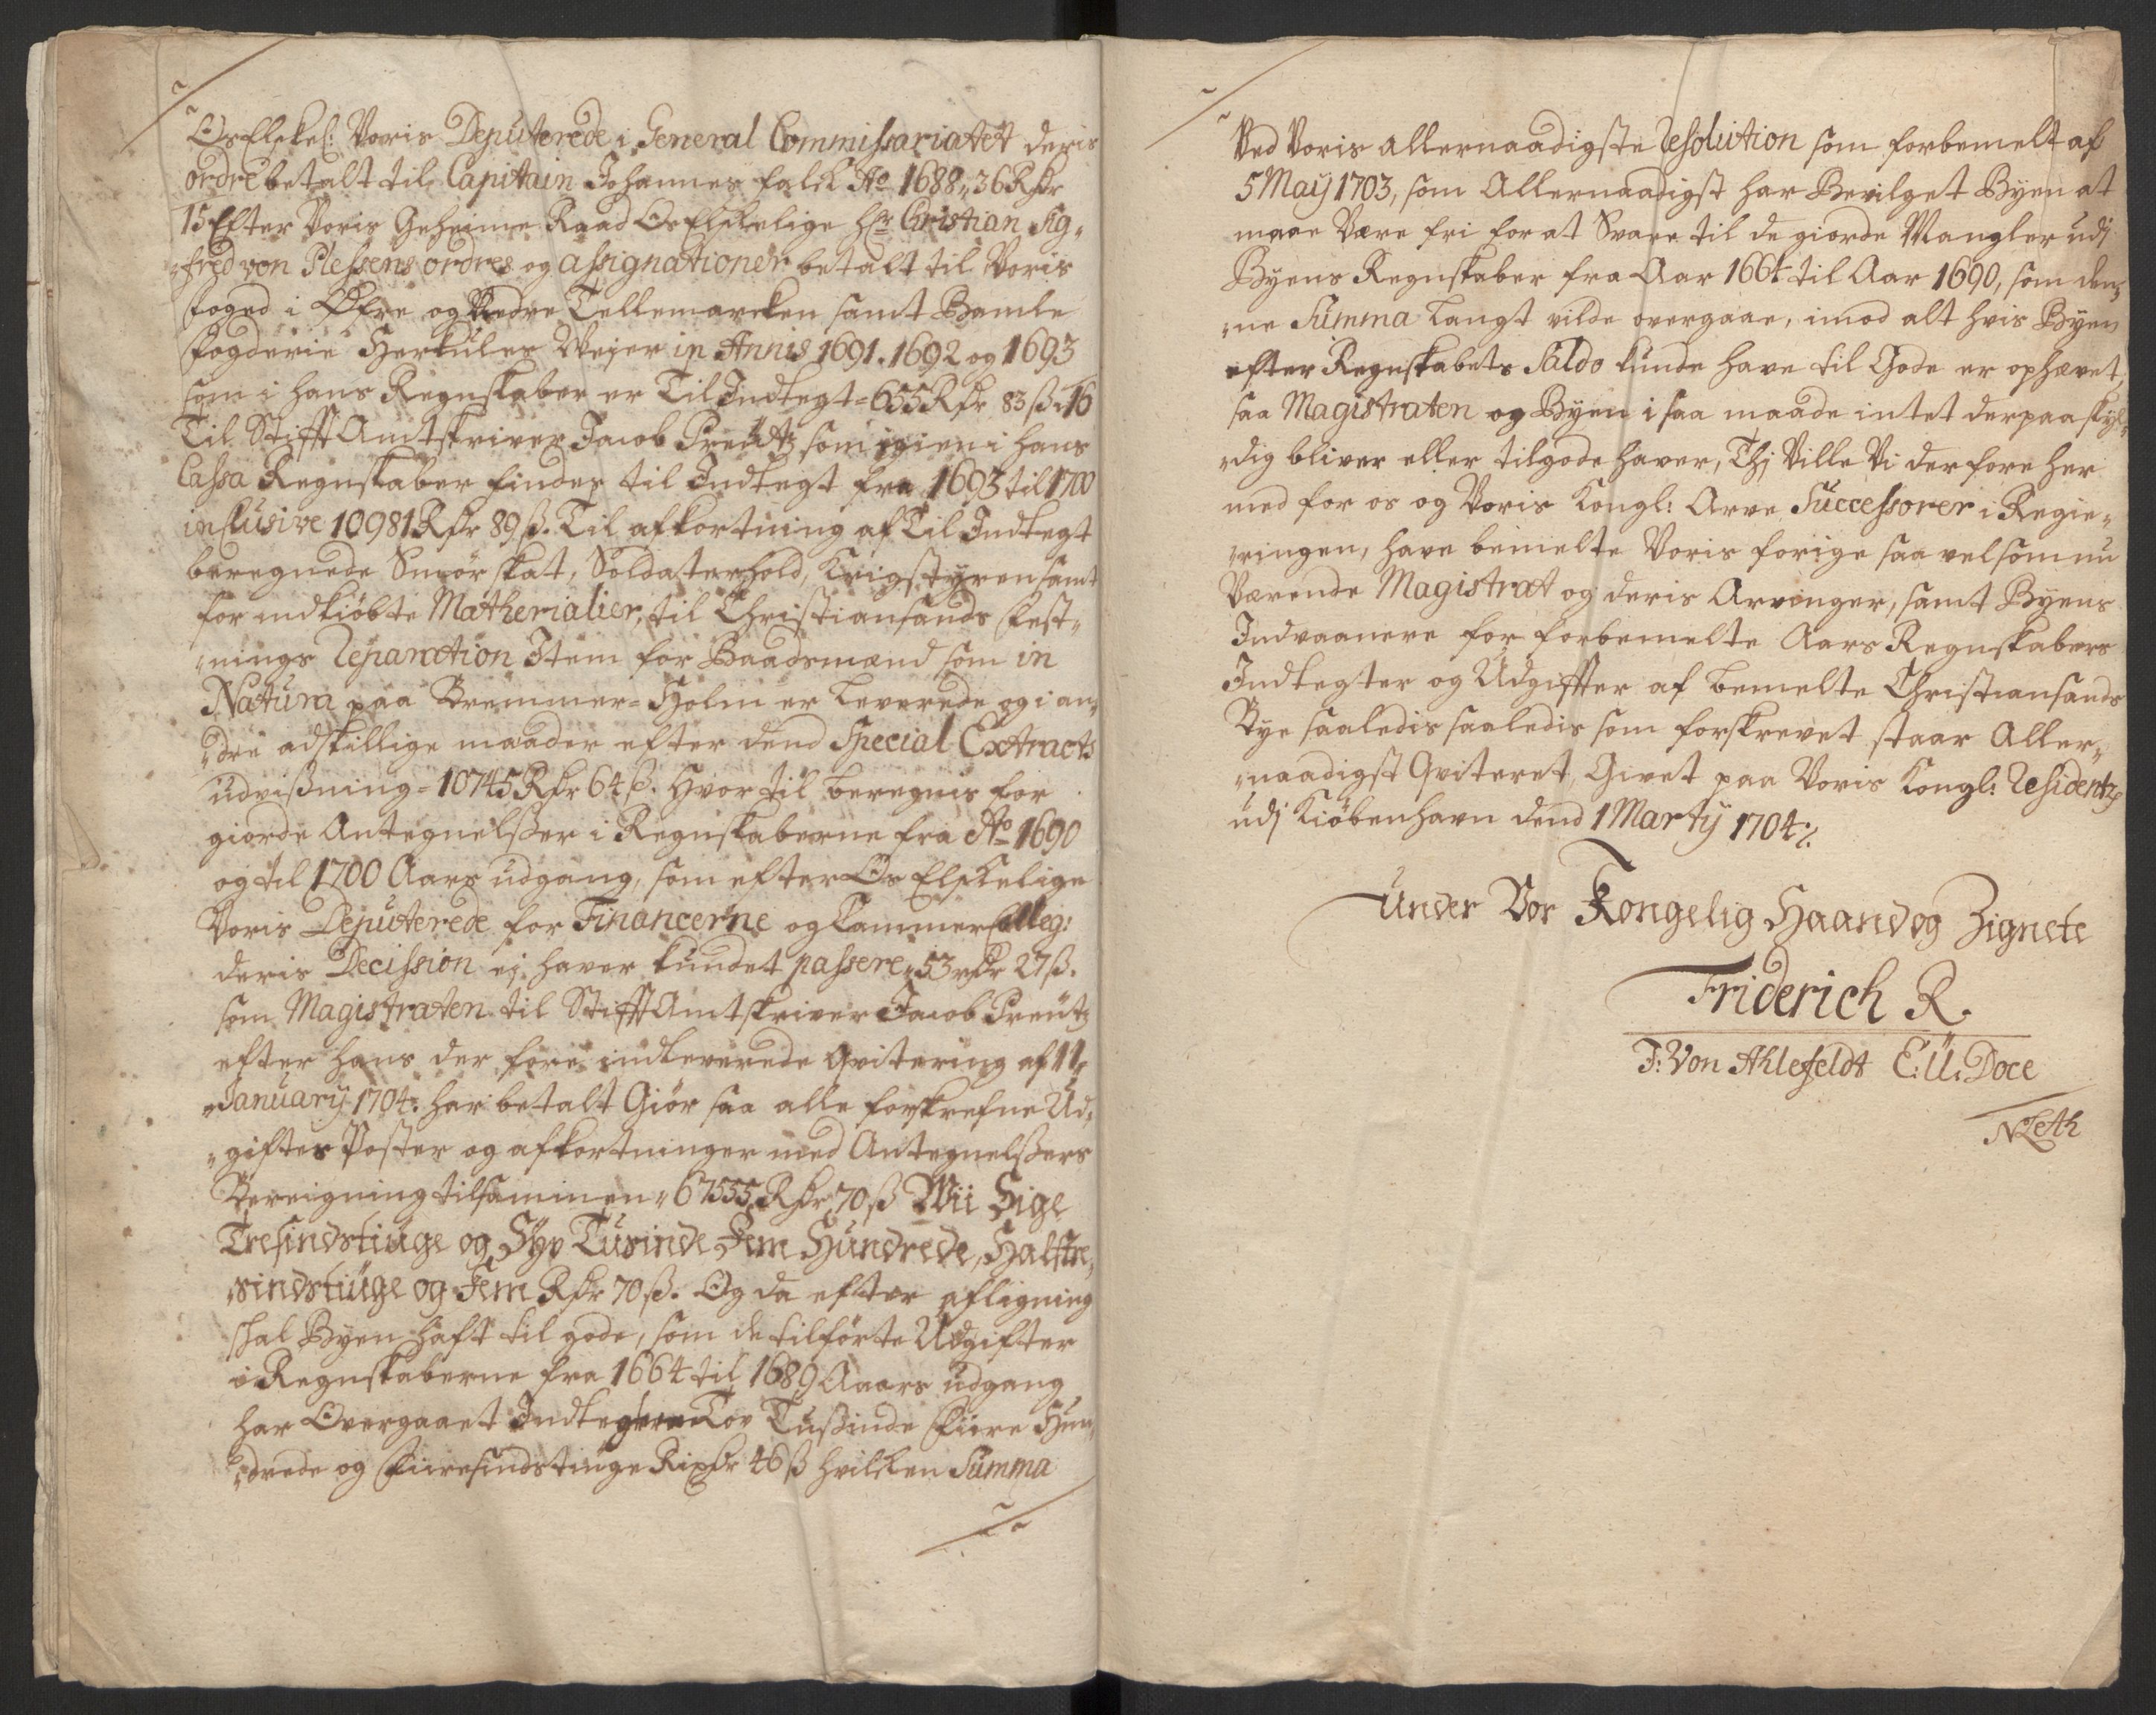 Os Elskel: Voris Deputerede i General Commissariatet deris
ordre betalt til Capitain Johannes Falck Ao 1688 „ 36 Rdr
15 Efter Voris Geheime Raad Os Elskelige Hr: Christian Sig„
„fred von Plessens ordres og assignationer betalt til Voris
foged i Øfre og Nedre Tellemarcken samt Bamle
fogderie Herkules Weyer in Annis 1691. 1692 og 1693
som i hans Regnskaber er Til Indtegt = 655 Rdr 83 ß „ 16
Til StifftAmtskriver Jacob Preutz som igien i hans
Cassa Regnskaber findes til Indtegt fra 1693 til 1700
inclusive 10981 Rdr 89 ß. Til afkortning af Til Indtegt
beregnede Smörskat, Soldaterhold, Krigstyren samt
for indkiöbte Matherialier, til Christiansands Fest„
„nings Reparation Item for Baadsmænd som in
Natura paa Bremmer=Holm er leverede og i an„
„dre adskillige maader efter dend Special Extracts
udvißning = 10745 Rdr 64 ß. Hvortil beregnis for
giorde Antegnelßer i Regnskaberne fra Ao 1690
og til 1700 Aars udgang, som efter Os Elskelige
Voris Deputerede for Financerne og Cammer Colleg:
deris Decission ej haver kundet passere „ 53 rdr 27 ß.
som Magistraten til StifftAmtskriver Jacob Preutz
efter hans der fore indleverede Qvitering af 11
„January 1704. har betalt Giör saa alle forskrefne Ud„
„gifter Poster og afkortninger med Antegnelßers
Bereigning tilsammen „ 67555 Rdr 70 ß Wii Sige
Tresindstiuge og Syv Tusinde Fem Hundrede, Halftre„
„sindstiuge og Fem Rdr 70 ß. Og da efter afligning
skal Byen haft til gode, som de tilförte Udgifter
i Regnskaberne fra 1664 til 1689 Aaars udgang
har Overgaaet Indtegterne Tov Tußinde Fiire Hun„
„drede og Fiiresindstiuge Rixdr 46 ß hvilcken Summa
Ved Voris allernaadigste Resolution som forbemelt af
5 Maÿ 1703, som Allernaadigst har Bevilget Byen at
maae Være fri for at Svare til de giorde Mangler udj
Byens Regnskaber fra Aar 1664 til Aar 1690, som den„
„ne Summa langt vilde overgaae, imod alt hvis Byen
efter Regnskabets Saldo kunde have til Gode er ophævet,
saa Magistraten og Byen i saa maade intet derpaa skyl„
„dig bliver eller tilgode haver, Thj Ville Vi der fore her
med for os og Voris Kongl: Arve Successorer i Regie„
„ringen, have bemelte Voris forige saa vel som nu
Værende Magistrat og deris Arvinger, samt Byens
Indvaanere for forbemelte Aars Regnskabers
Indtegter og Udgiffter af bemelte Christiansands
Bye saaledis saaledis som forskrevet staar Aller„
„naadigst Qviteret, Givet paa Voris Kongl: Residentz
udj Kiöbenhavn dend 1 Martÿ 1704 ./.
Under Vor Kongelig Haand og Zignete
Friderich R.
F: Von Ahlefeldt E: U: Doce
N Leth